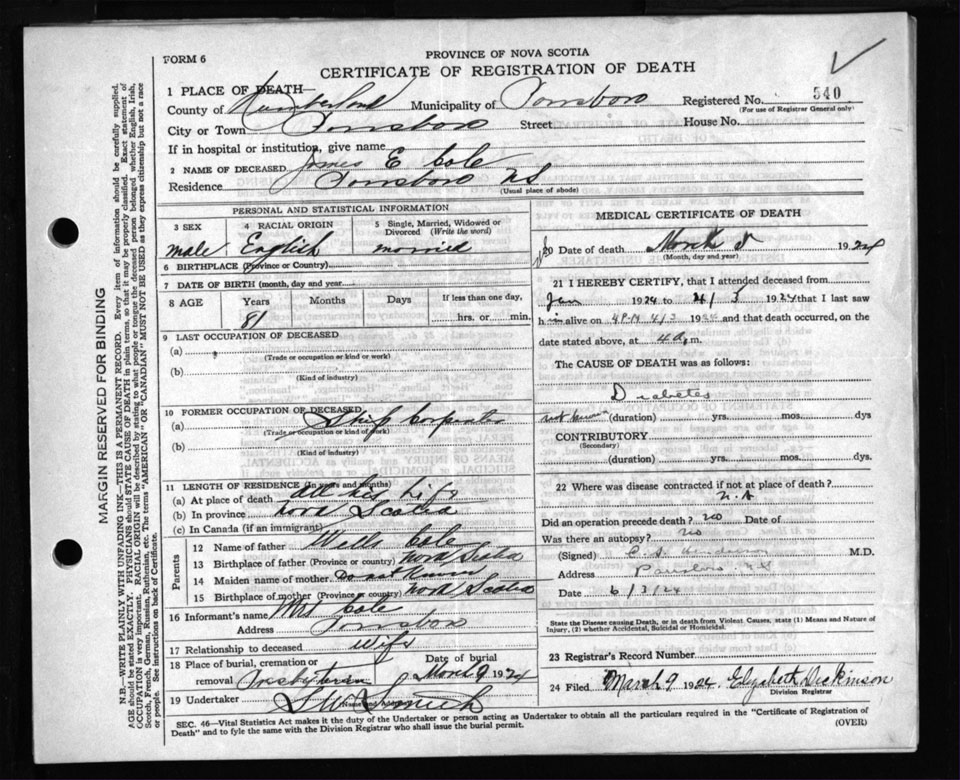 FORM 6
PROVINCE OF NOVA SCOTIA
CERTIFICATE OF REGISTRATION OF DEATH
540
1 PLACE OF DEATH
County of Cumberland Municipality of Parrsboro Registered No.
(For use of Registrar General only)
City or Town Parrsboro Street House No.
If in hospital or institution, give name
2 NAME OF DECEASED James E Cole
Residence Parrsboro N S
(Usual place of abode)
PERSONAL AND STATISTICAL INFORMATION
3 SEX male
4 RACIAL ORIGIN English
5 Single, Married, Widowed or Divorced (Write the word) married
6 BIRTHPLACE (Province or Country)
7 DATE OF BIRTH (month, day and year)
8 AGE Years Months Days If less than one day,
81 hrs. or min.
9 LAST OCCUPATION OF DECEASED
(a)
(Trade or occupation or kind or work)
(b)
(Kind of industry)
10 FORMER OCCUPATION OF DECEASED
(a) Ship Carpenter
(Trade or occupation or kind of work)
(b)
(Kind of industry)
11 LENGTH OF RESIDENCE (in years and months)
(a) At place of death all his life
(b) In province Nova Scotia
(c) In Canada (if an immigrant)
Parents
12 Name of father Wells Cole
13 Birthplace of father (Province or country) Nova Scotia
14 Maiden name of mother Do not Know
15 Birthplace of mother (Province or country) Nova Scotia
16 Informant's name Cole
Address Parrsboro
17 Relationship to deceased wife
18 Place of burial, cremation or removal Presbyterian
Date of burial March 9 1924
19 Undertaker
(Name and address)
MEDICAL CERTIFICATE OF DEATH
20 Date of death March 5 1924
(Month, day and year)
21 I HEREBY CERTIFY, that I attended deceased from
Jan 1924 to 4/3 1924 that I last saw
h im alive on 4 P.M. 4/3 192 and that death occurred, on the
date stated above, at 4 a m.
The CAUSE OF DEATH was as follows:
Diabetes
not known (duration) yrs. mos. dys
CONTRIBUTORY
(Secondary)
(duration) yrs. mos. dys
22 Where was disease contracted if not at place of death?
N.A
Did an operation precede death? no Date of
Was there an autopsy? no
(Signed) C. S. Henderson M.D.
Address Parrsboro N.S
Date 6/3/24
State the Disease causing Death, or in death from Violent Causes, state (1) Means and Nature of
Injury, (2) whether Accidental, Suicidal or Homicidal.
23 Registrar's Record Number
24 Filed March 9 1924 Elizabeth Dickinson
Division Registrar
SEC. 46—Vital Statistics Act makes it the duty of the Undertaker or person acting as Undertaker to obtain all the particulars required in the "Certificate of Registration of
Death" and to fyle the same with the Division Registrar who shall issue the burial permit. (OVER)
MARGIN RESERVED FOR BINDING
N.B.—WRITE PLAINLY WITH UNFADING INK—THIS IS A PERMANENT RECORD. Every item of information should be carefully supplied.
AGE should be stated EXACTLY. PHYSICIANS should STATE CAUSE OF DEATH in plain terms, so that it may be properly classified. Exact statement of
OCCUPATION is very important. RACIAL ORIGIN will be described by stating to what people or tongue the deceased person belonged whether English, Irish,
Scotch, French, German, Russian, Ruthenian, etc. The terms "AMERICAN" or "CANADIAN" MUST NOT BE USED as they express citizenship but not a race
or people. See instructions on back of Certificate.